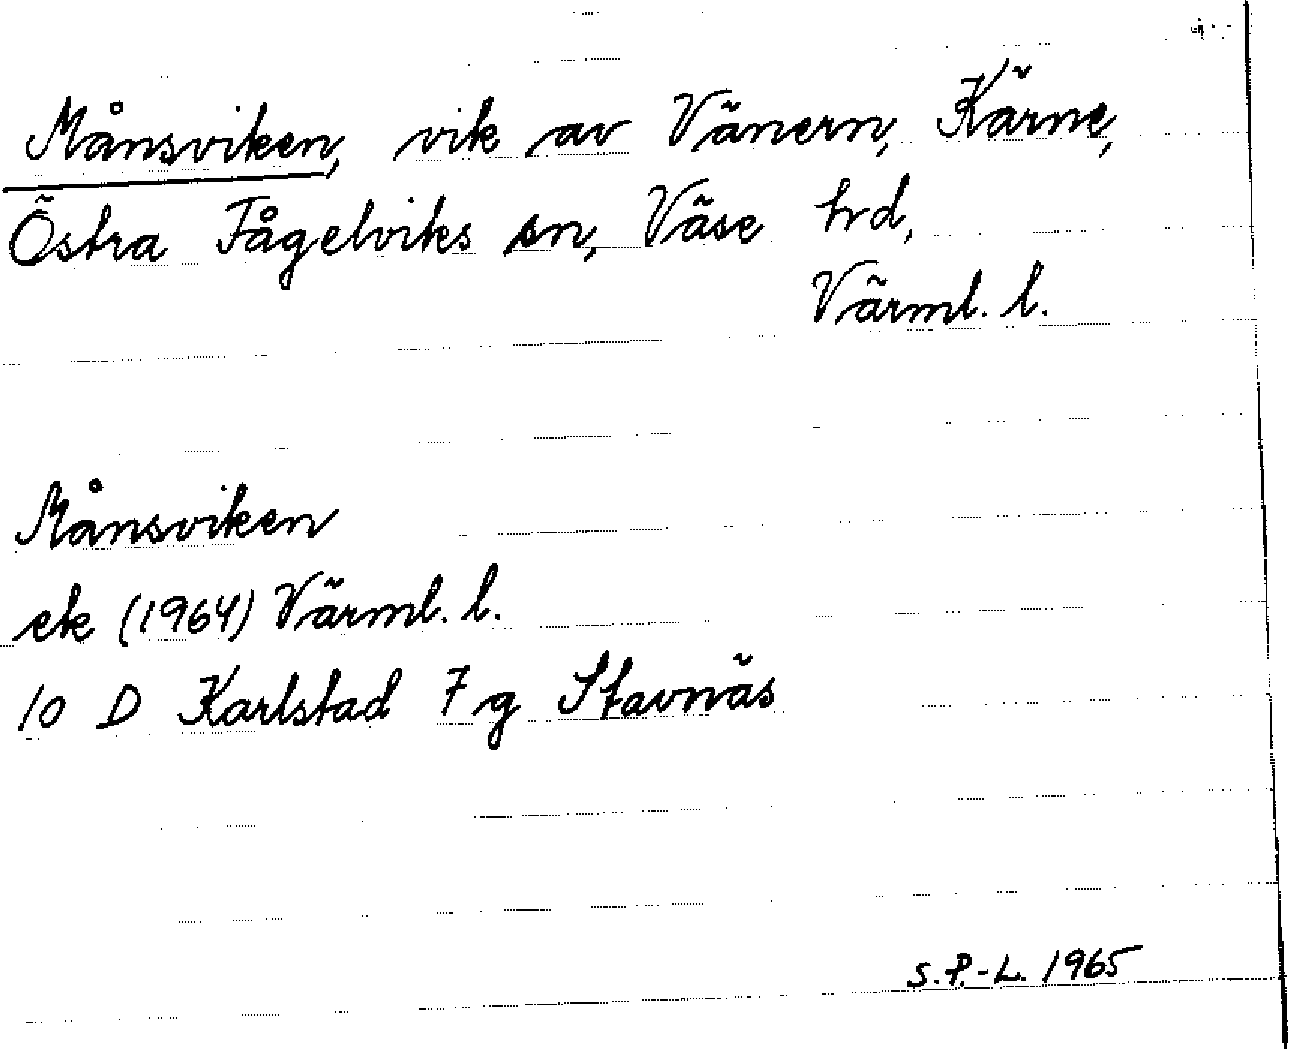 Månsviken, vik av Vänern, Kärne,
Östra Fågelviks sn, Väse hrd,
Värml. l.
Månsviken
ek (1964) Värml. l.
10 D Karlstad 7 g Stavnäs
S.P.-L. 1965